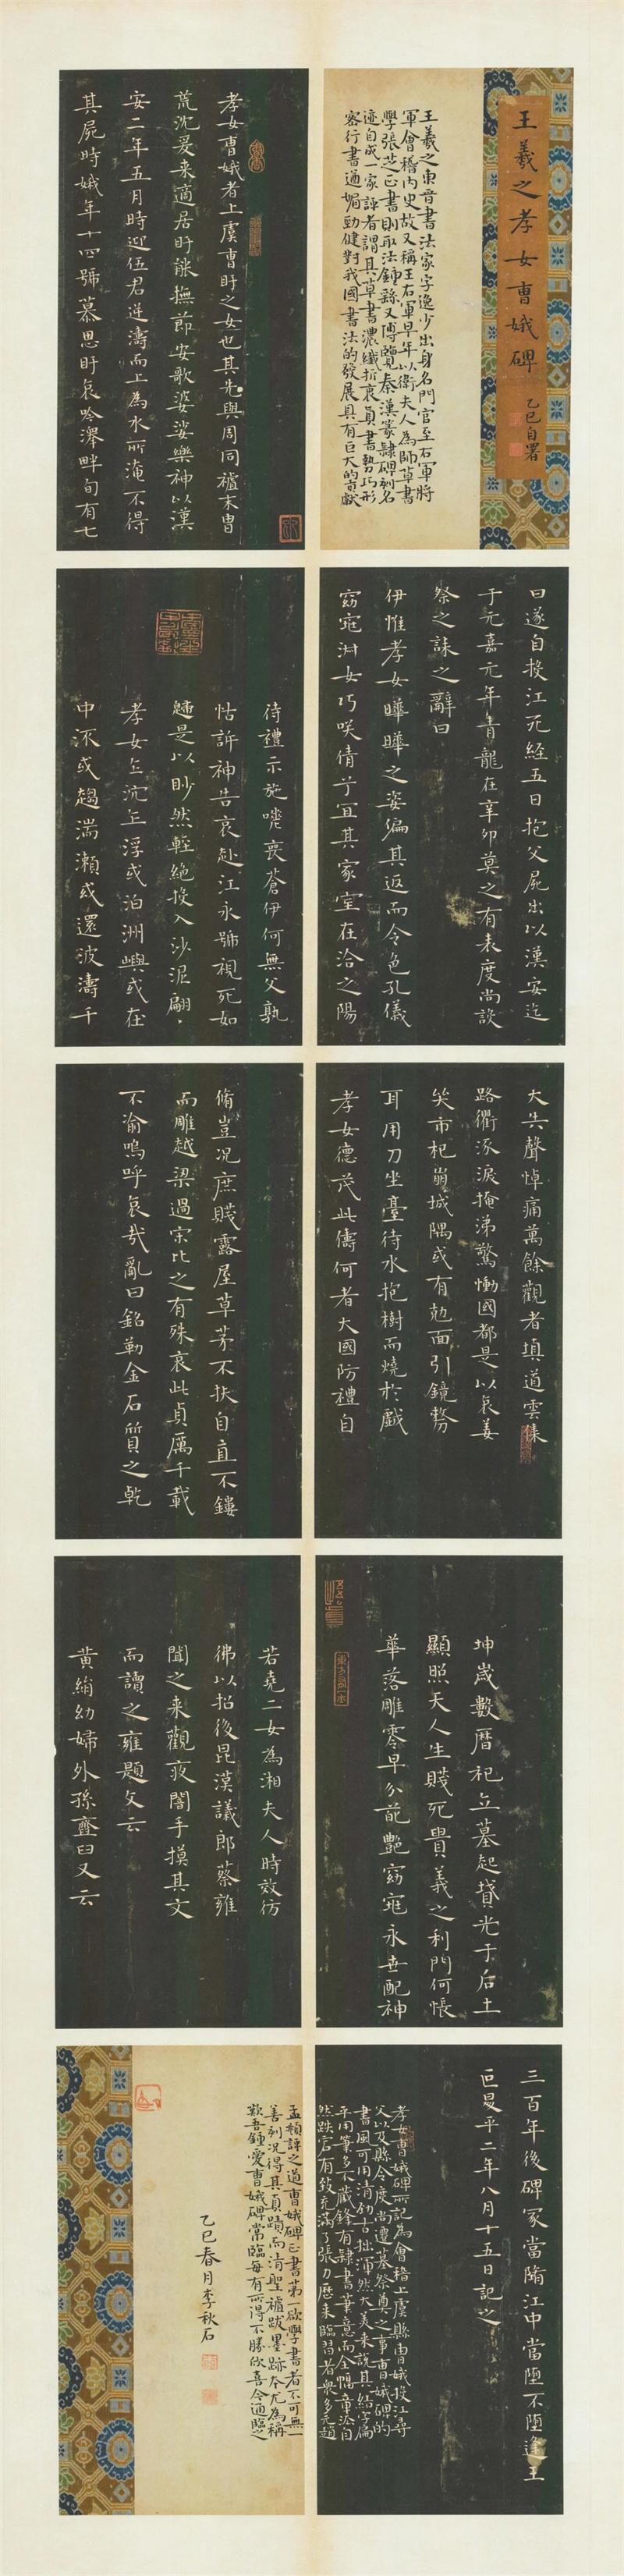 王羲之孝女曹娥碑
乙巳自署
王羲之東晉書法家字逸少出身名門官至右軍將
軍會稽內史故又稱王右軍早年以衛夫人為師草書
學張芝正書則取法鍾繇又博覽秦漢篆隸碑刻名
迹自成一家評者謂其草書濃纖折衷真書勢巧形
密行書遒媚勁健對我國書法的發展具有巨大的貢獻
孝女曹娥者上虞曹盱之女也其先與周同祖末胄
荒沈爰来適居盱能撫節安歌婆娑樂神以漢
安二年五月時迎伍君逆濤而上為水所淹不得
其屍時娥年十四號慕思盱哀吟澤畔旬有七
日遂自投江死経五日抱父屍出以漢安迄
于元嘉元年青龍在辛卯莫之有表度尚設
祭之誄之辭曰
伊惟孝女曄曄之姿偏其返而令色孔儀
窈窕淑女巧咲倩兮宜其家室在洽之陽
待禮示施嗟喪蒼伊何無父孰
怙訴神告哀赴江永號視死如
歸是以眇然輕絕投入沙泥翩、
孝女乍沉乍浮或泊洲嶼或在
中流或趨湍瀨或還波濤千
夫失聲悼痛萬餘觀者填道雲集
路衢泣淚掩涕驚慟國都是以哀姜
哭市杞崩城隅或有剋面引鏡剺
耳用刀坐臺待水抱樹而燒於戲
孝女德茂此儔何者大國防禮自
脩豈況庶賤露屋草茅不扶自直不鏤
而雕越梁過宋比之有殊哀此貞厲千載
不渝嗚呼哀哉亂曰銘勒金石質之乾
坤歲數曆祀立墓起墳光于后土
顯照天人生賤死貴義之利門何悵
華落雕零早分葩艷窈窕永世配神
若堯二女為湘夫人時效彷
彿以招後昆漢議郎蔡雍
聞之来觀夜闇手摸其文
而讀之雍題文云
黃絹幼婦外孫齏臼又云
三百年後碑冢當隋江中當墮不墮逢王
叵昇平二年八月十五日記之
孝女曹娥碑所記為會稽上虞縣曹娥投江尋
父以及縣令度尚遷墓祭奠之事曹娥碑的
書風可用清勁古拙渾然天美来說其結字扁
平用筆多不藏鋒有隸書筆意而全幅章法自
然跌宕有致充滿了張力歷来臨習者衆多元趙
孟頫評之道曹娥碑正書第一欲學書者不可無一
善刻况得其真蹟而清聖祖跋墨跡本尤為稱
歎吾鍾愛曹娥碑常臨每有所得不勝欣喜今通臨之
乙巳春月李秋石